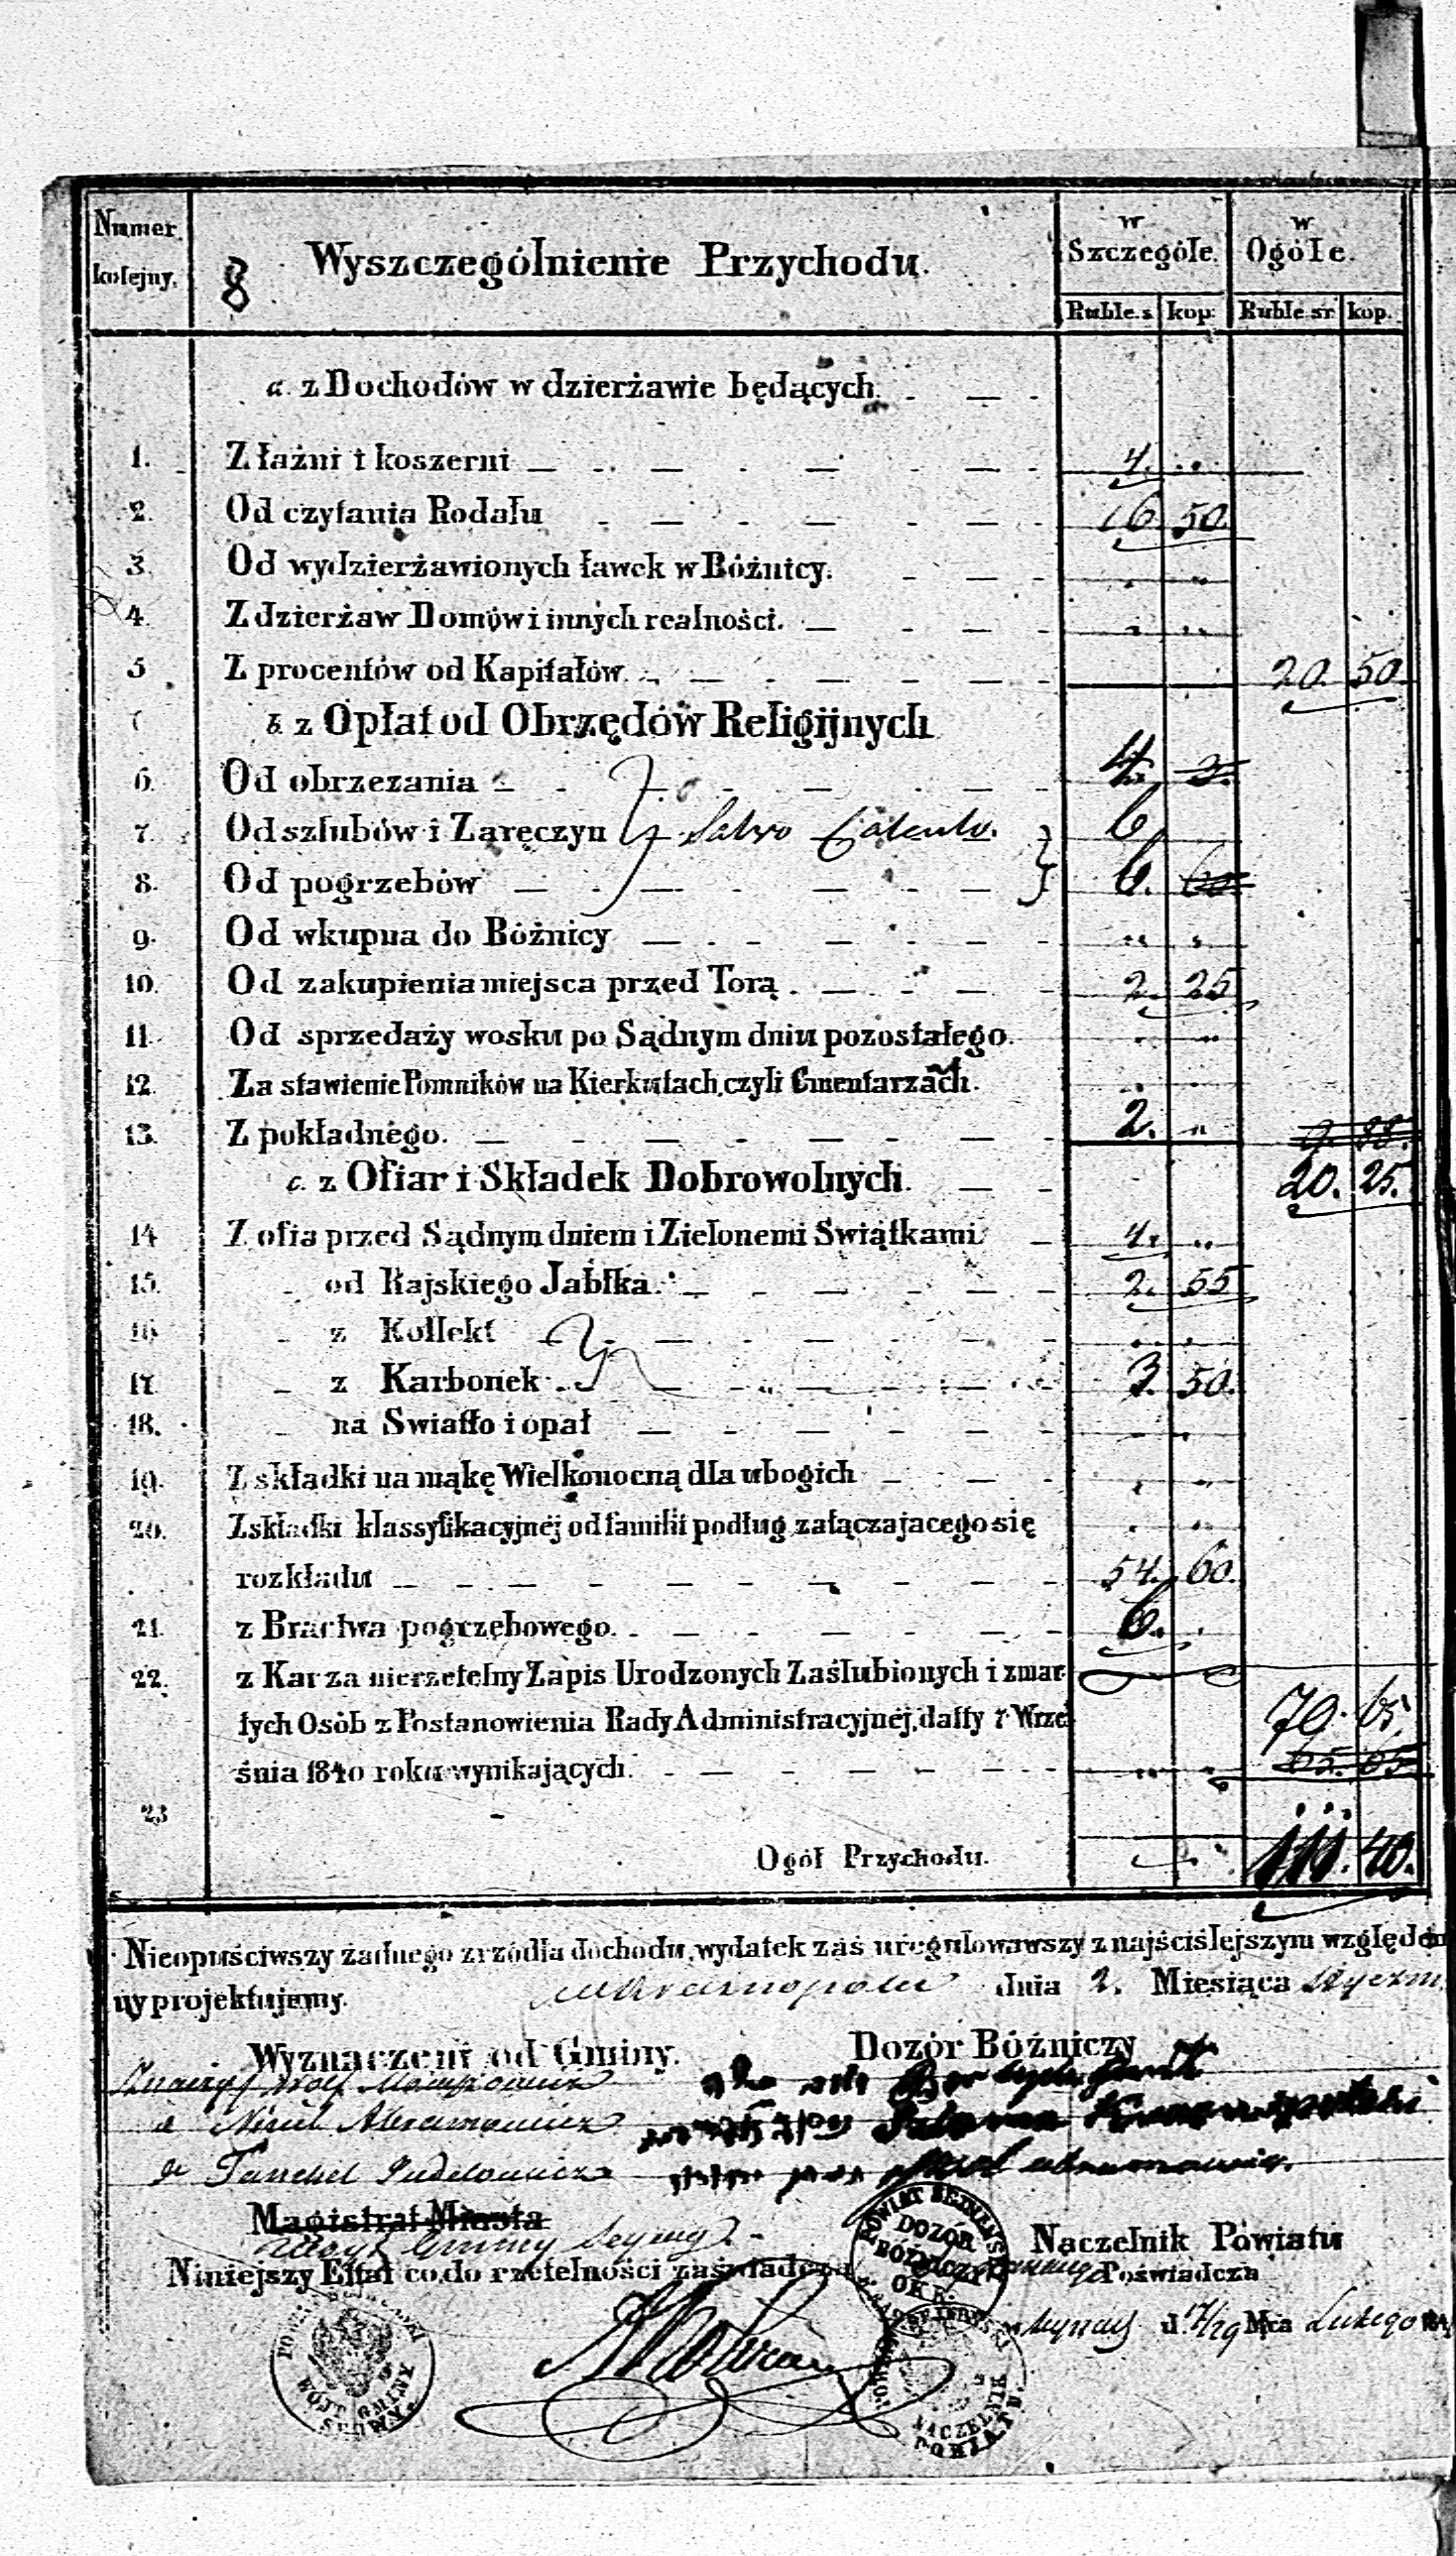 Numer kolejny.
8
Wyszczególnienie Przychodu.
w Szczególe. w Ogóle.
Ruble.s kop: Ruble sr kop.
a. z Dochodów w dzierżawie będących.
1. Z łaźni i koszerni 4. ..
2. Od czytania Rodału 16 50
3. Od wydzierżawionych ławek w Bóżnicy.
4. Z dzierżaw Domów i innych realności.
5 Z procentów od Kapitałów. 20. 50
b. z Opłat od Obrzędów Religijnych
6. Od obrzezania 4.
7. Od szlubów i Zaręczyn Salvo Calculo. 6
8. Od pogrzebów 6. 60
9. Od wkupna do Bóżnicy
10. Od zakupienia miejsca przed Torą. 2. 25
11. Od sprzedaży wosku po Sądnym dniu pozostałego.
12. Za stawienie Pomników na Kierkutach, czyli Cmentarzach.
13. Z pokładnego. 2. „ 9. 88.
c. z Ofiar i Składek Dobrowolnych. 20. 25.
14 Z ofia przed Sądnym dniem i Zielonemi Swiątkami 4. ..
15. od Rajskiego Jabłka. 2. 55
16 z Kollekt
17 z Karbonek 3. 50.
18. na Swiatło i opał
19. Z składki na mąkę Wielkonocną dla ubogich
20. Z składki klassyfikacyjnéj od familii podług załączajacego się
rozkładu 54. 60.
21. z Bractwa pogrzebowego. 6.
22. z Kar za nierzetelny Zapis Urodzonych Zaślubionych i zmar
łych Osób z Postanowienia Rady Administracyjnéj, datty Wrze 70. 65
śnia 1840 roku wynikających. 65. 65
23
Ogół Przychodu. 111. 40.
Nieopuściwszy żadnego zrzódła dochodu, wydatek zaś uregulowawszy z najściślejszym względem
ny projektujemy. w Krasnopolu dnia 2. Miesiąca Stycznia
Wyznaczeni od Gminy. Dozór Bóżniczy
Abramowicz
Judelowicz
Magistrat Miasta
Wóyt Gminy Seyny Naczelnik Powiatu
Niniejszy Etat co do rzetelności zaświadcza Poświadcza
d. 17/29 Mca Lutego
POWIAT SEJNEŃSKI
DOZÓR BÓŻNICZY OKR.
WÓJT GMINY SEJNY
NACZELNIK POWIATU